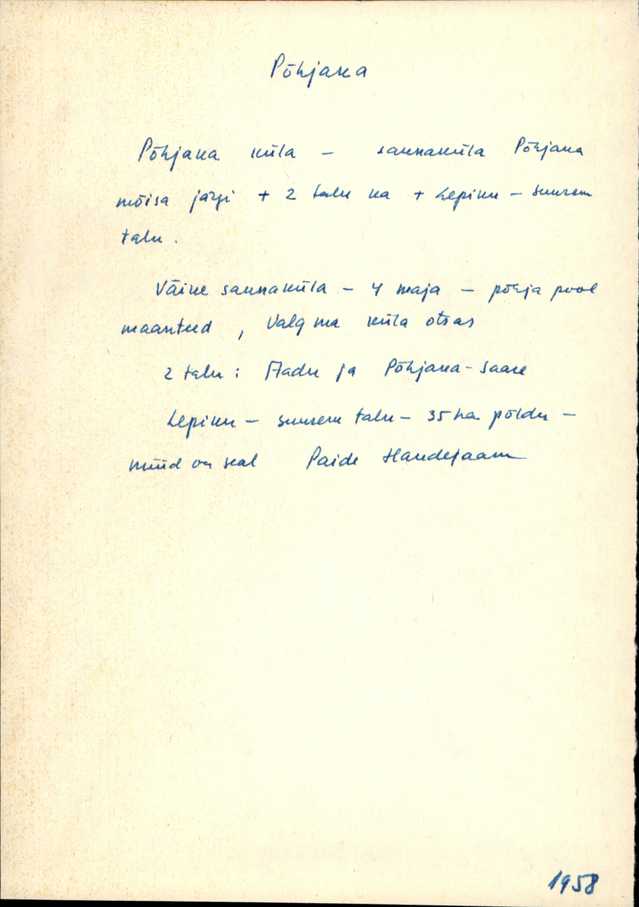 Põhjaka
Põhjaka küla – saunaküla Põhjaka
mõisa järgi + 2 talu ka + Lepiku – suurem
talu.
Väike saunaküla – 4 maja – põhja pool
maanteed, Valgma küla otsas
2 talu: Aadu ja Põhjaka-Saare
Lepiku – suurem talu – 35 ha põldu –
nüüd on seal Paide Haudejaam
1958